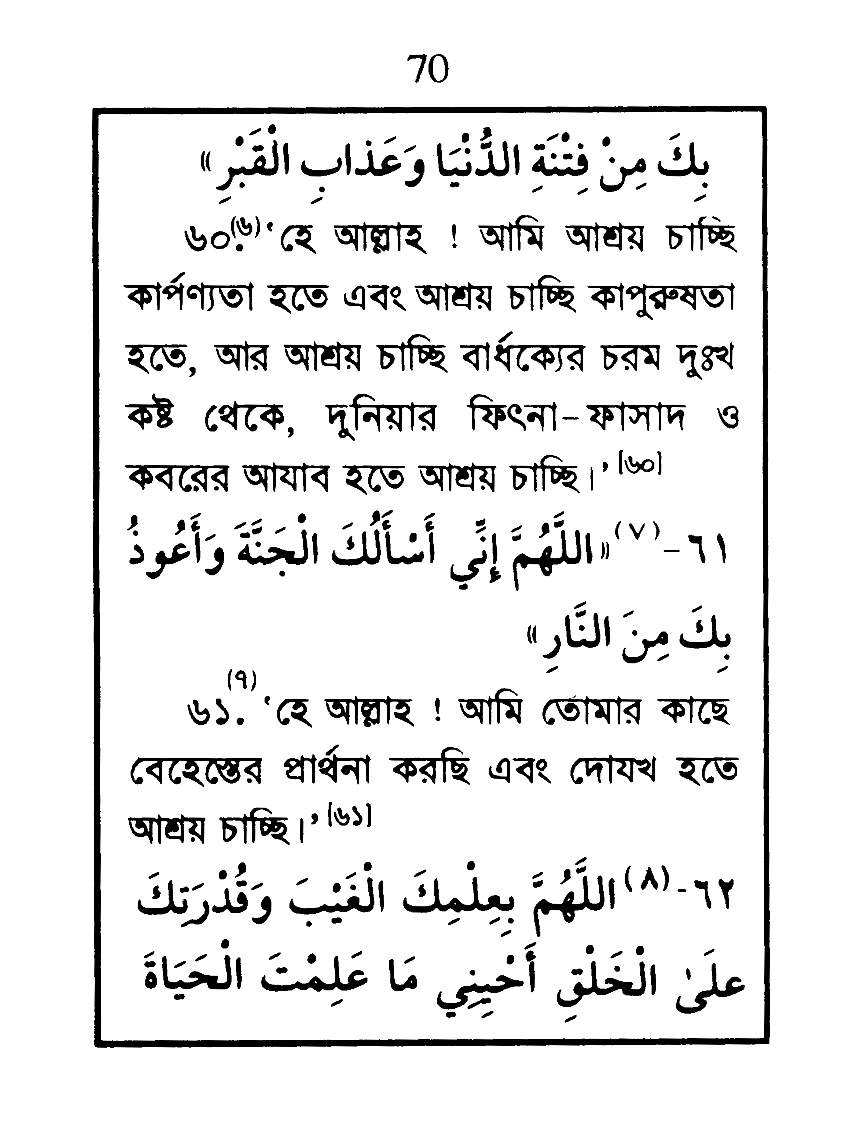 70
بِكَ مِنْ فِتْنَةِ الدُّنْيَا وَعَذابِ الْقَبْرِ»
৬০.(৬) ‘হে আল্লাহ ! আমি আশ্রয় চাচ্ছি
কার্পণ্যতা হতে এবং আশ্রয় চাচ্ছি কাপুরুষতা
হতে, আর আশ্রয় চাচ্ছি বার্ধক্যের চরম দুঃখ
কষ্ট থেকে, দুনিয়ার ফিৎনা-ফাসাদ ও
কবরের আযাব হতে আশ্রয় চাচ্ছি।’ [৬০]
٦١-(٧) «اللَّهُمَّ إِنِّي أَسْأَلُكَ الْجَنَّةَ وَأَعُوذُ
بِكَ مِنَ النَّارِ»
৬১.(৭) ‘হে আল্লাহ ! আমি তোমার কাছে
বেহেস্তের প্রার্থনা করছি এবং দোযখ হতে
আশ্রয় চাচ্ছি।’ [৬১]
٦٢-(٨) اللَّهُمَّ بِعِلْمِكَ الْغَيْبَ وَقُدْرَتِكَ
عَلَىٰ الْخَلْقِ أَحْيِنِي مَا عَلِمْتَ الْحَيَاةَ